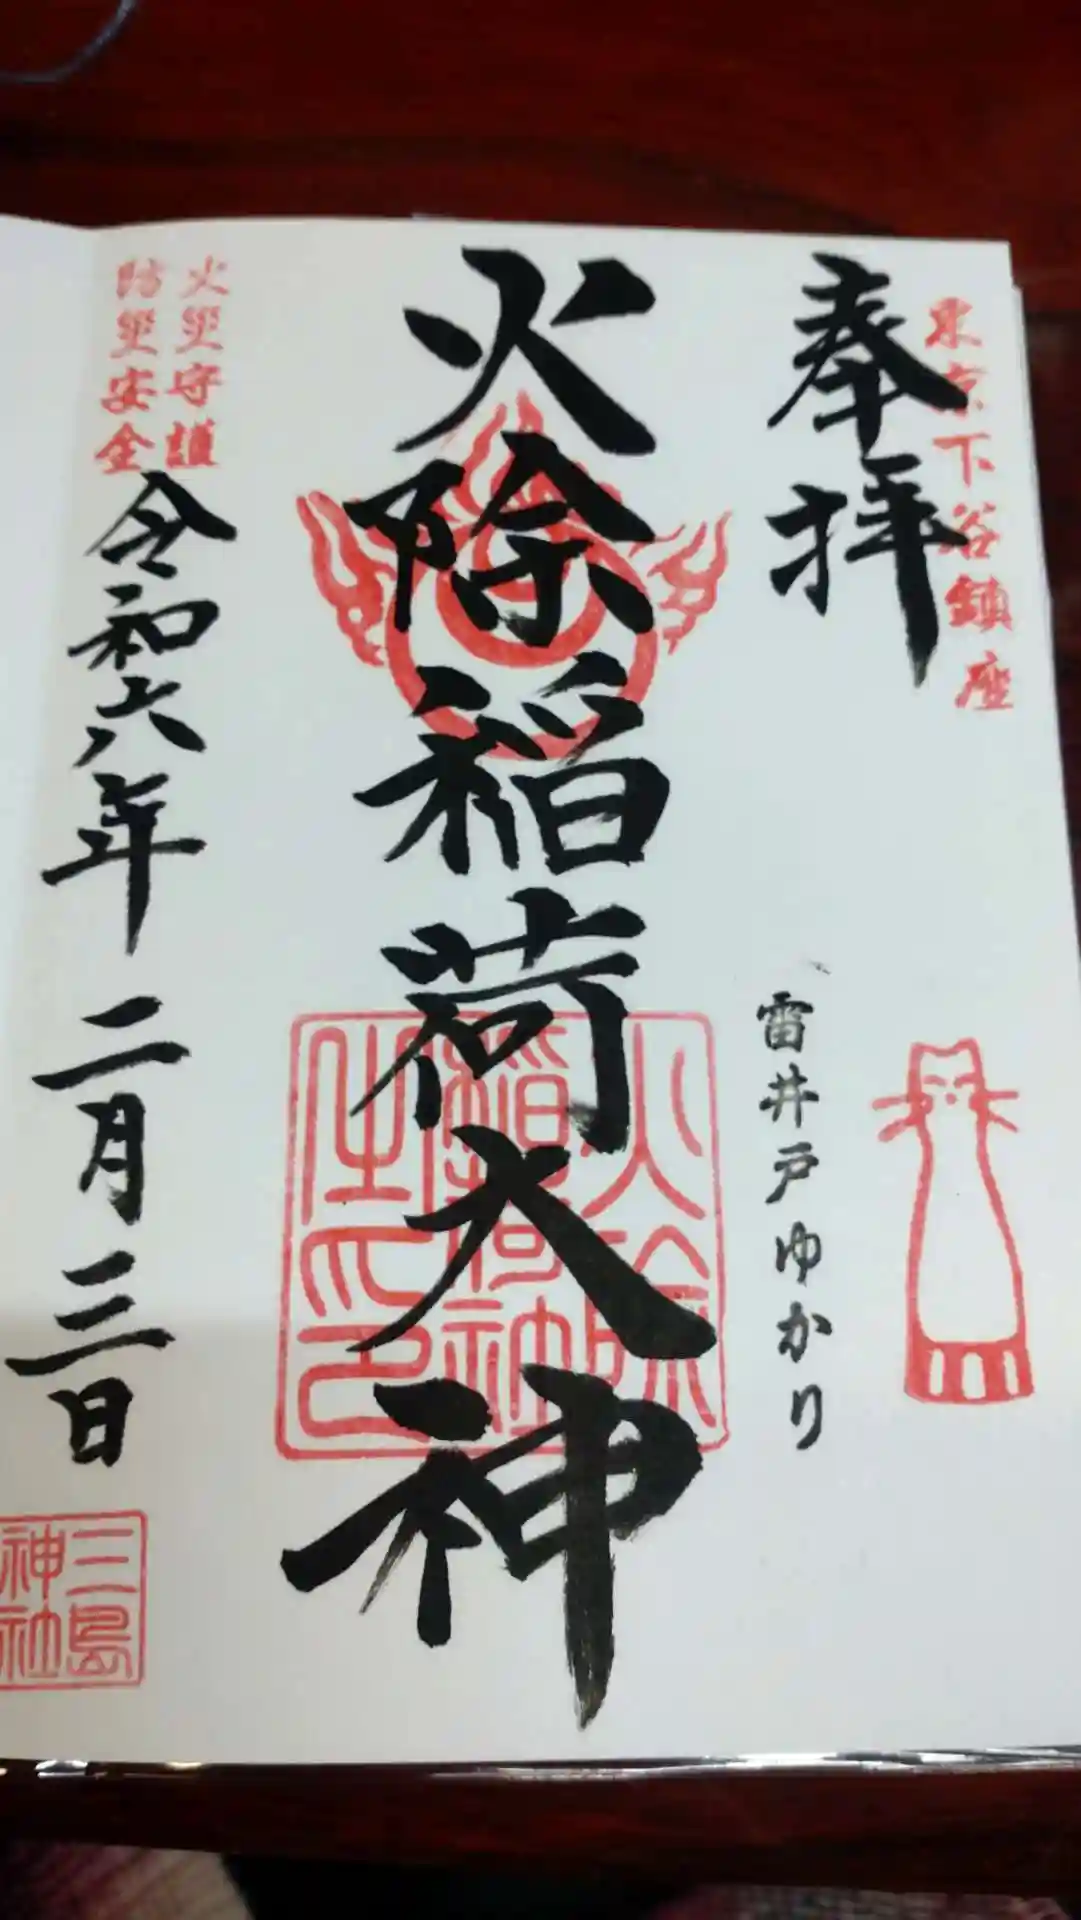 東京下谷鎮座
奉拝
雷井戸ゆかり
火除稲荷大神
火除
稲荷社
之印
火災守護
防災安全
令和六年二月三日
三島
神社